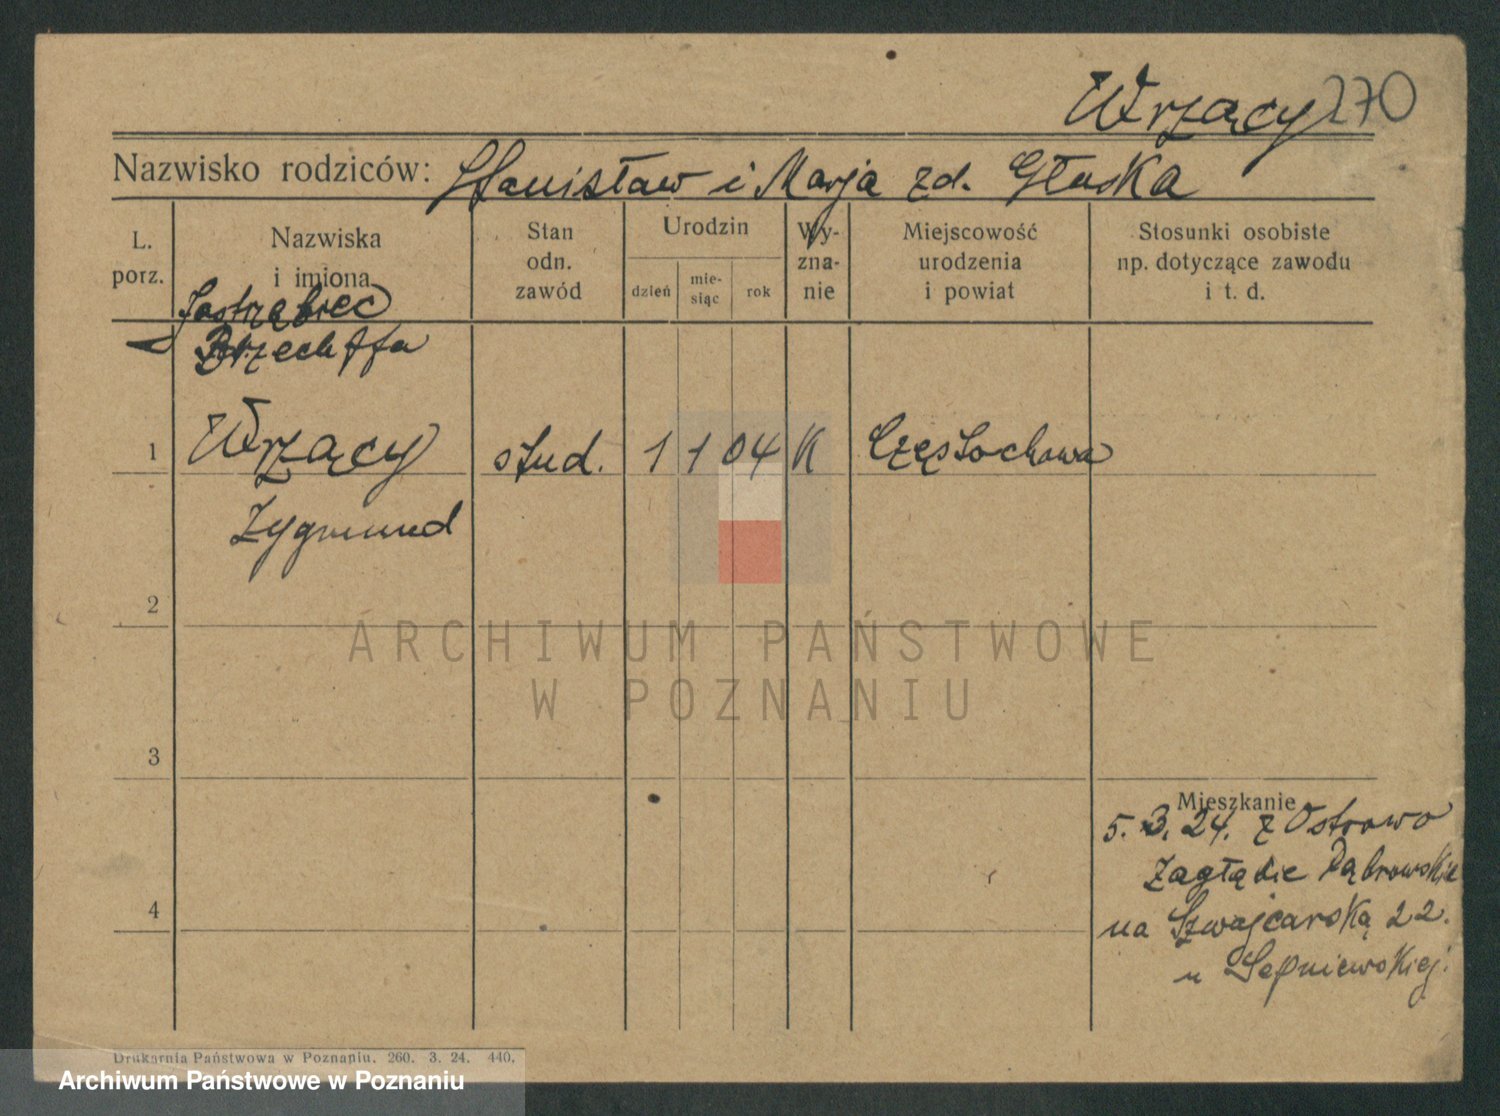 Wrzący 270
Nazwisko rodziców: Stanisław i Marja zd. Głuska
L. porz.
Nazwiska i imiona
Stan odn. zawód
Urodzin
dzień
mie-siąc
rok
Wy-zna-nie
Miejscowość urodzenia i powiat
Stosunki osobiste np. dotyczące zawodu i t. d.
Jastrząbiec
Brzechffa
1 Wrzący stud. 1 1 04 K Częstochowa
Zygmund
2
ARCHIWUM PAŃSTWOWE
W POZNANIU
3
Mieszkanie
5. 3. 24. z Ostrowo
Zagłębie Dąbrowskie
4
na Szwajcarską 22.
u
Drukarnia Państwowa w Poznaniu. 260. 3. 24. 440.
Archiwum Państwowe w Poznaniu